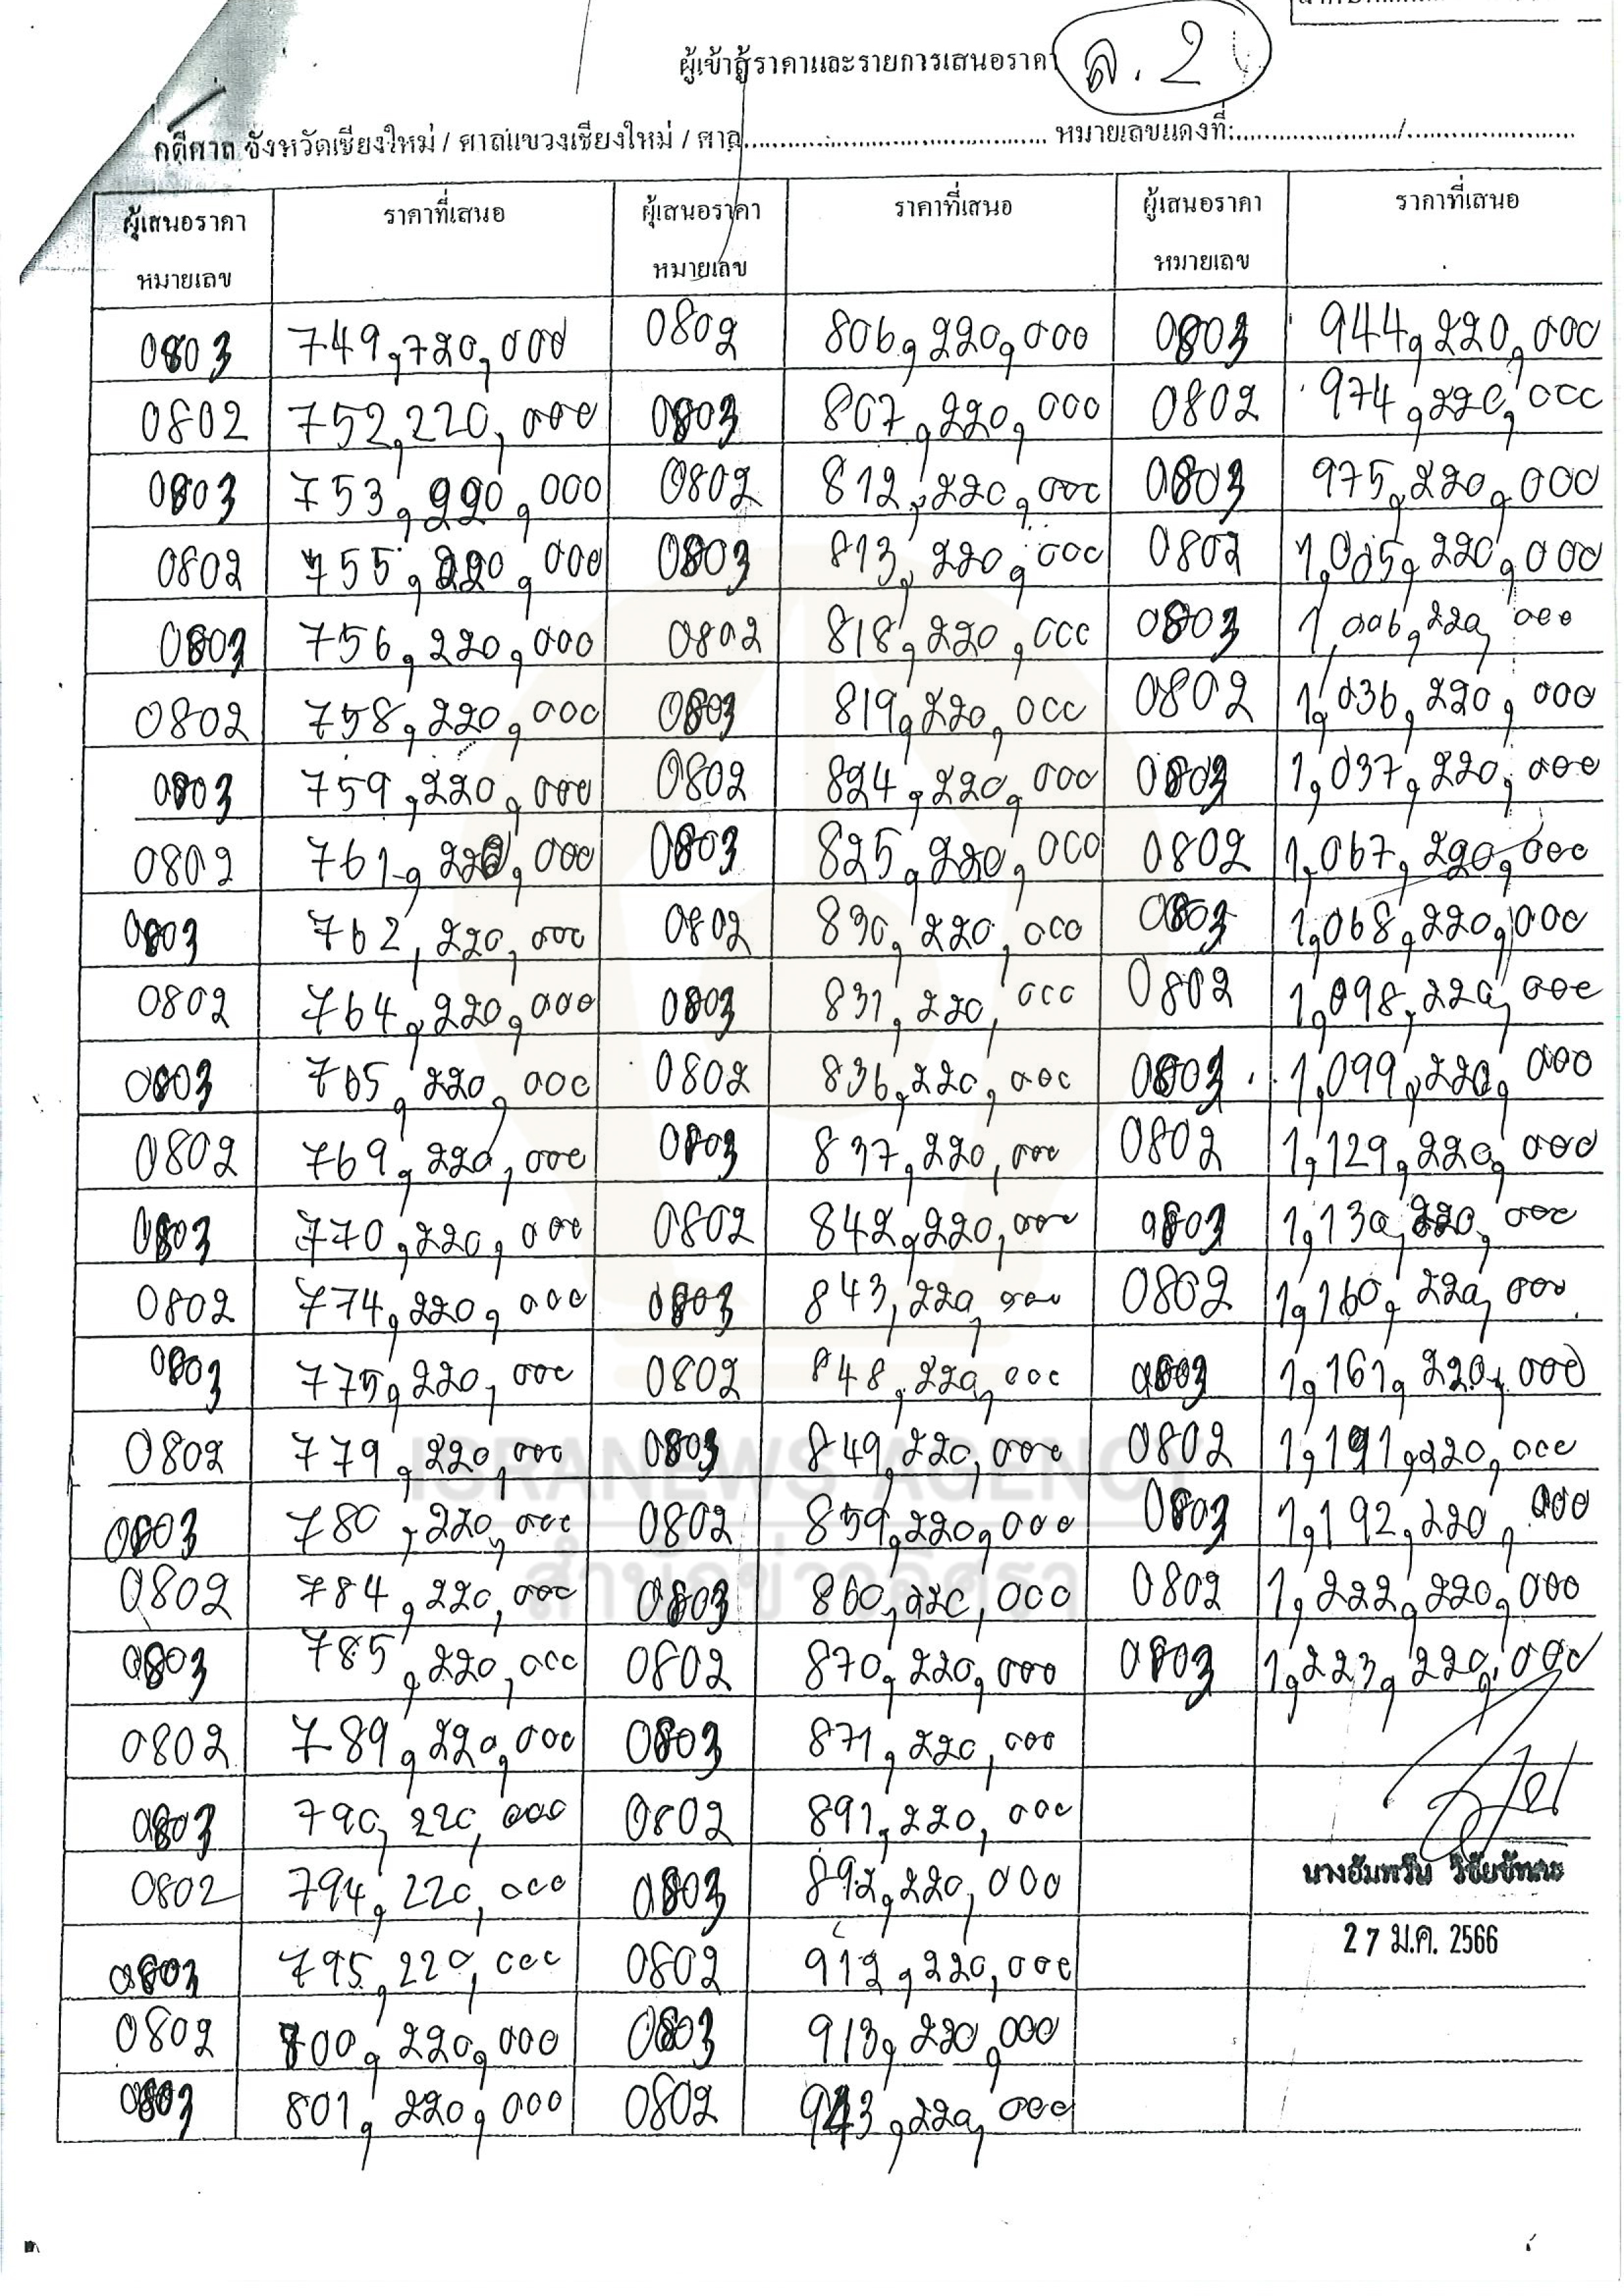 ผู้เข้าสู้ราคาและรายการเสนอราคา ล. 2
คดีศาล จังหวัดเชียงใหม่ / ศาลแขวงเชียงใหม่ / ศาล........................................ หมายเลขแดงที่:....................../......................
ผู้เสนอราคา หมายเลข ราคาที่เสนอ ผู้เสนอราคา หมายเลข ราคาที่เสนอ ผู้เสนอราคา หมายเลข ราคาที่เสนอ
0803 749,720,000 0802 806,220,000 0803 944,220,000
0802 752,220,000 0803 807,220,000 0802 974,220,000
0803 753,220,000 0802 812,220,000 0803 975,220,000
0802 755,220,000 0803 813,220,000 0802 1,005,220,000
0803 756,220,000 0802 818,220,000 0803 1,006,220,000
0802 758,220,000 0803 819,220,000 0802 1,036,220,000
0803 759,220,000 0802 824,220,000 0803 1,037,220,000
0802 761,220,000 0803 825,220,000 0802 1,067,220,000
0803 762,220,000 0802 830,220,000 0803 1,068,220,000
0802 764,220,000 0803 831,220,000 0802 1,098,220,000
0803 765,220,000 0802 836,220,000 0803 1,099,220,000
0802 769,220,000 0803 837,220,000 0802 1,129,220,000
0803 770,220,000 0802 842,220,000 0803 1,130,220,000
0802 774,220,000 0803 843,220,000 0802 1,160,220,000
0803 775,220,000 0802 848,220,000 0803 1,161,220,000
0802 779,220,000 0803 849,220,000 0802 1,191,220,000
0803 780,220,000 0802 859,220,000 0803 1,192,220,000
0802 784,220,000 0803 860,220,000 0802 1,222,220,000
0803 785,220,000 0802 870,220,000 0803 1,223,220,000
0802 789,220,000 0803 871,220,000
0803 790,220,000 0802 891,220,000
0802 794,220,000 0803 892,220,000
0803 795,220,000 0802 912,220,000
0802 800,220,000 0803 913,220,000
0803 801,220,000 0802 943,220,000
นางอัมพวัน
27 ม.ค. 2566
ISRANEWS AGENCY
สำนักข่าวอิศรา